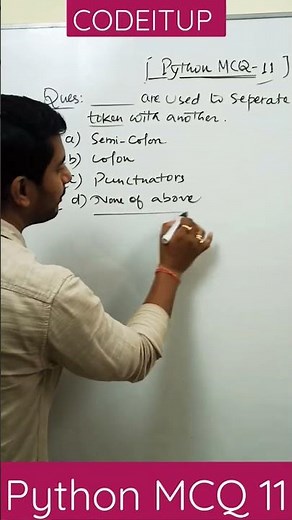 CODEITUP
[ Python MCQ-11 ]
Ques: ____ are used to seperate
token with another.
a) Semi-Colon
b) Colon
c) Punctuators
d) None of above
Python MCQ 11